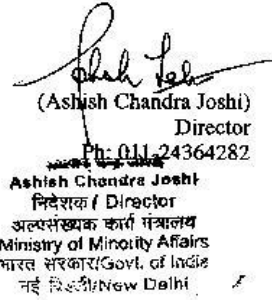 (Ashish Chandra Joshi)
Director
Ph: 011-24364282
Ashish Chandra Joshi
निदेशक / Director
अल्पसंख्यक कार्य मंत्रालय
Ministry of Minority Affairs
भारत सरकार/Govt. of India
नई दिल्ली/New Delhi